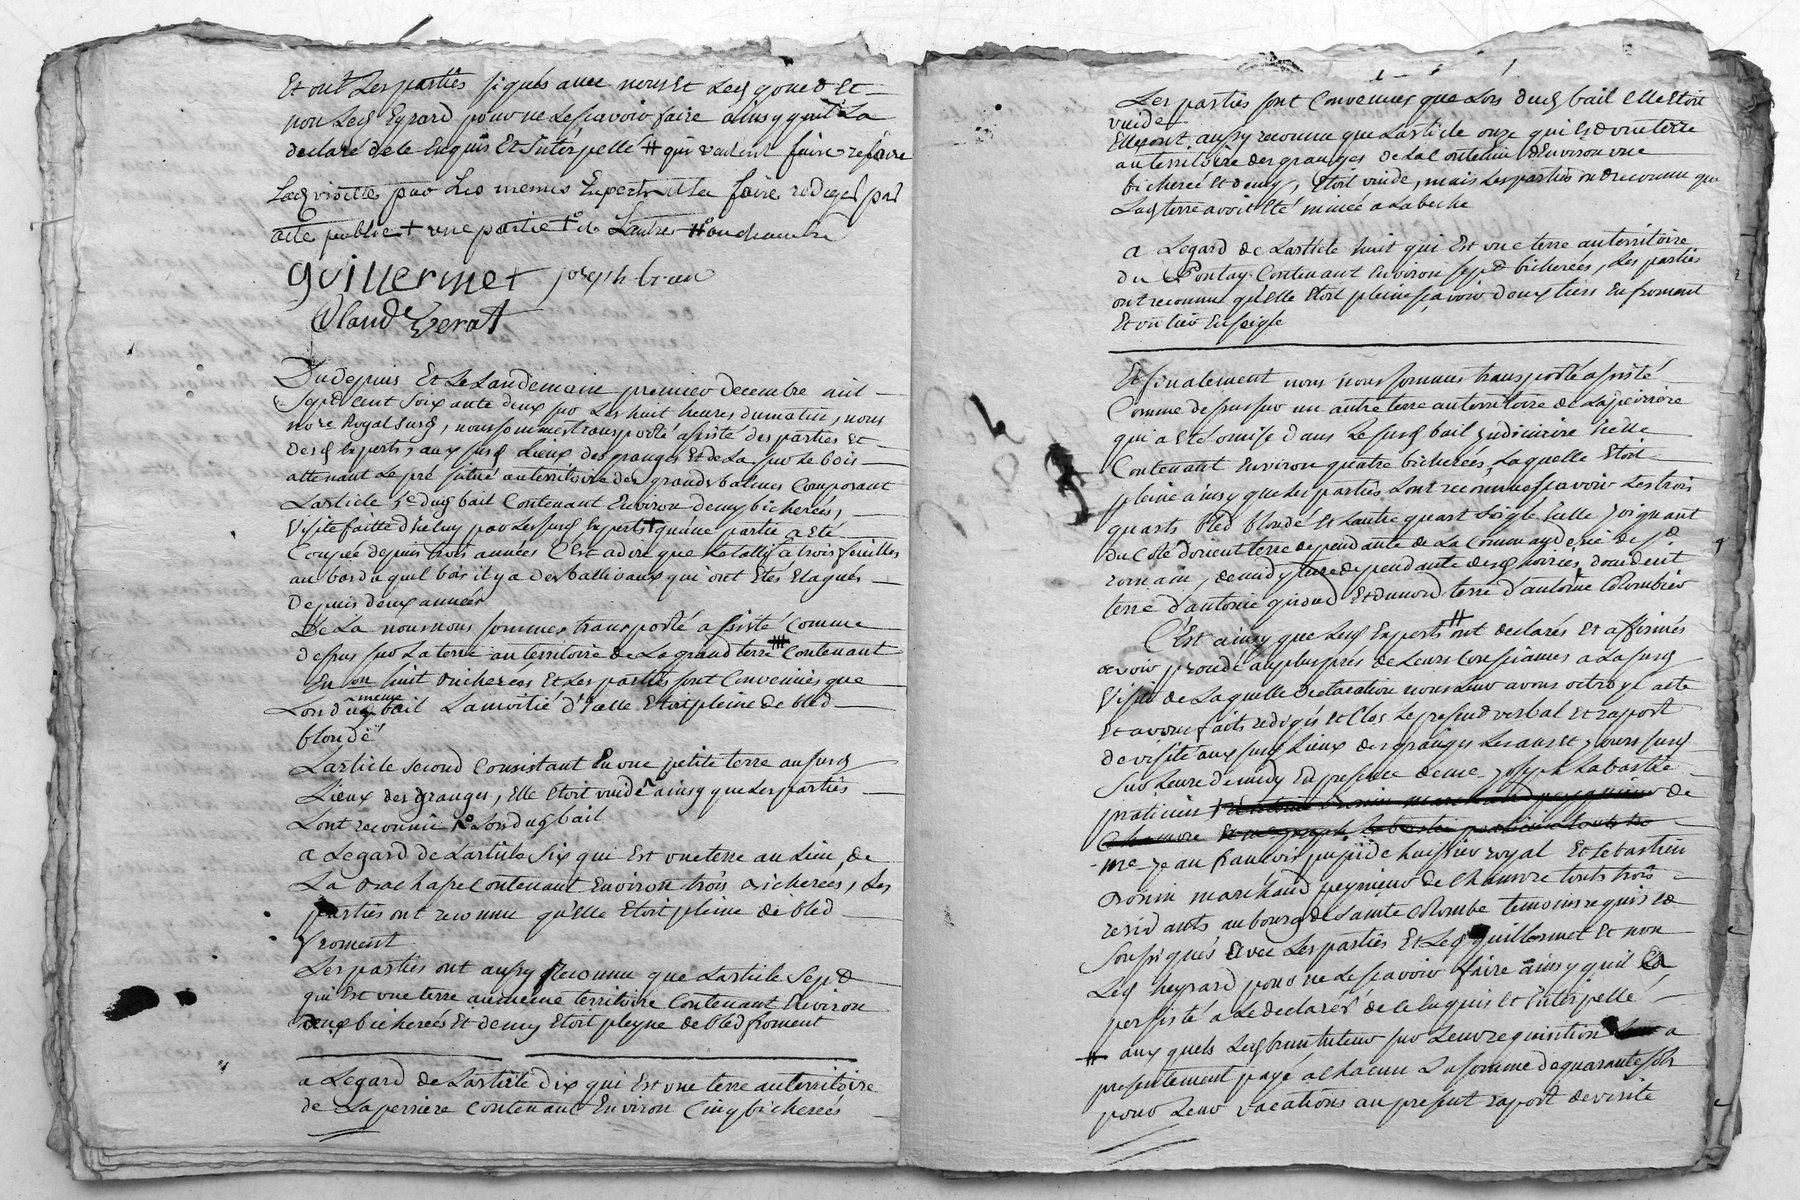 Et ont Les parties signés avec nous Et Led gonet Et
non Led Eyrard pour ne Le scavoir faire ainsy quil La
declaré de ce Enquis Et Interpellé # qui veulent faire refaire
Lad visitte par Les memes Experts et La faire rediger par
acte public + une partie +o de Lautres #o
guillermet joseph brun
Claude Gerat
Du depuis Et Le Landemain premier decembre mil
sept Cent soixante deux sur Les huit heures du matin, nous
no.re Royal susd, nous sommes transporté assisté des parties Et
Desd Experts, aux susd Lieux des granges Et de La sur Le bois
attenant Le pré situé au territoire des grands balmes Composant
Larticle 5e dud bail Contenant Environ demy bicherée,
Visite faitte d'iceluy par Lesusd Experts + quune partie a Eté
Coupée depuis trois années C'Est a dire que Le tally a trois feuilles
au bas du quel bois il y a des ballivaux qui ont Etés Elagués
Depuis deux années
De La nous nous sommes transporté assisté Comme
dessus sur La terre au territoire de La grand terre # Contenant
En.on huit bicherées Et Les parties sont Convenües que
Lors dud meme bail La moitié d'icelle Etoit pleine de bled
blondé
Larticle second Consistant En une petite terre au susd
Lieux des granges, Elle Etoit vuide ainsy que Les parties
Lont reconnu Lors dud bail
a Legard de Larticle Six qui Est une terre au Lieu de
La Contenant Environ trois bicherées, Les
parties ont reconnu qu'elle Etoit pleine de bled
froment
Les parties ont aussy reconnu que Larticle Sept
qui Est une terre au meme territoire Contenant Environ
deux bicherées Et demy Etoit pleyne de bled froment
a Legard de Larticle dix qui Est une terre au territoire
de La perriere Contenant Environ Cinq bicherées
Les parties sont Convenues que Lors dud bail elle Etoit
vuide
Elles ont aussy reconnu que Larticle onze qui Est une terre
au territoire des granges de La Contenüe d'Environ une
bicherée Et demy, Etoit vuide, mais Les parties ont reconnu que
Lad terre avoit Eté minée a La beche
a Legard de Larticle huit qui Est une terre au territoire
du Pontay Contenant Environ sept bicherées, Les parties
ont reconnu qu'Elle Etoit pleine scavoir deux tiers En froment
Et un tier En seigle
Et finalement nous nous sommes transporté assisté
Comme dessus sur un autre terre au territoire de La perriere
qui a Eté omise dans Le susd bail judiciaire icelle
Contenant Environ quatre bicherées, Laquelle Etoit
pleine ainsy que Les parties Lont reconnu scavoir Les trois
quarts bled blondé Et Lautre quart soigle icelle joignant
du Coté d'orient terre dependante de La Commanderie de St
romain, de midy terre dependante desd hoiries, d'occident
terre d'antoine giroud Et du nord terre d'antoine Colombier
C'Est ainsy que Lesd Experts # ont declarés Et affirmés
avoir procedé au plus prés de Leurs Consciances a La susd
Visite de Laquelle declaration nous Leur avons octroyé acte
Et avons faits redigés Et Clos Le present verbal Et raport
de visite aux susd Lieux des granges Les an Et jours susd
Sur Leure de midy En presence de me joseph Labastie
praticien de
Chanvre
me jean francois pupide huissier royal Et sebastien
bonin marchand peignieur de Chanvre touts trois
residants au bourg de Sainte Colombe temoins requis Et
soussignés avec Les parties Et Led guillermet Et non
Led heyrard pour ne Le scavoir faire ainsy quil La
persisté a Le declarer de ce Enquis Et Interpellé
# aux quels Led brun tuteur sur Leur requisition a
presentement payé a chacun La somme de quarante sols
pour Leur vacations au present raport de visite